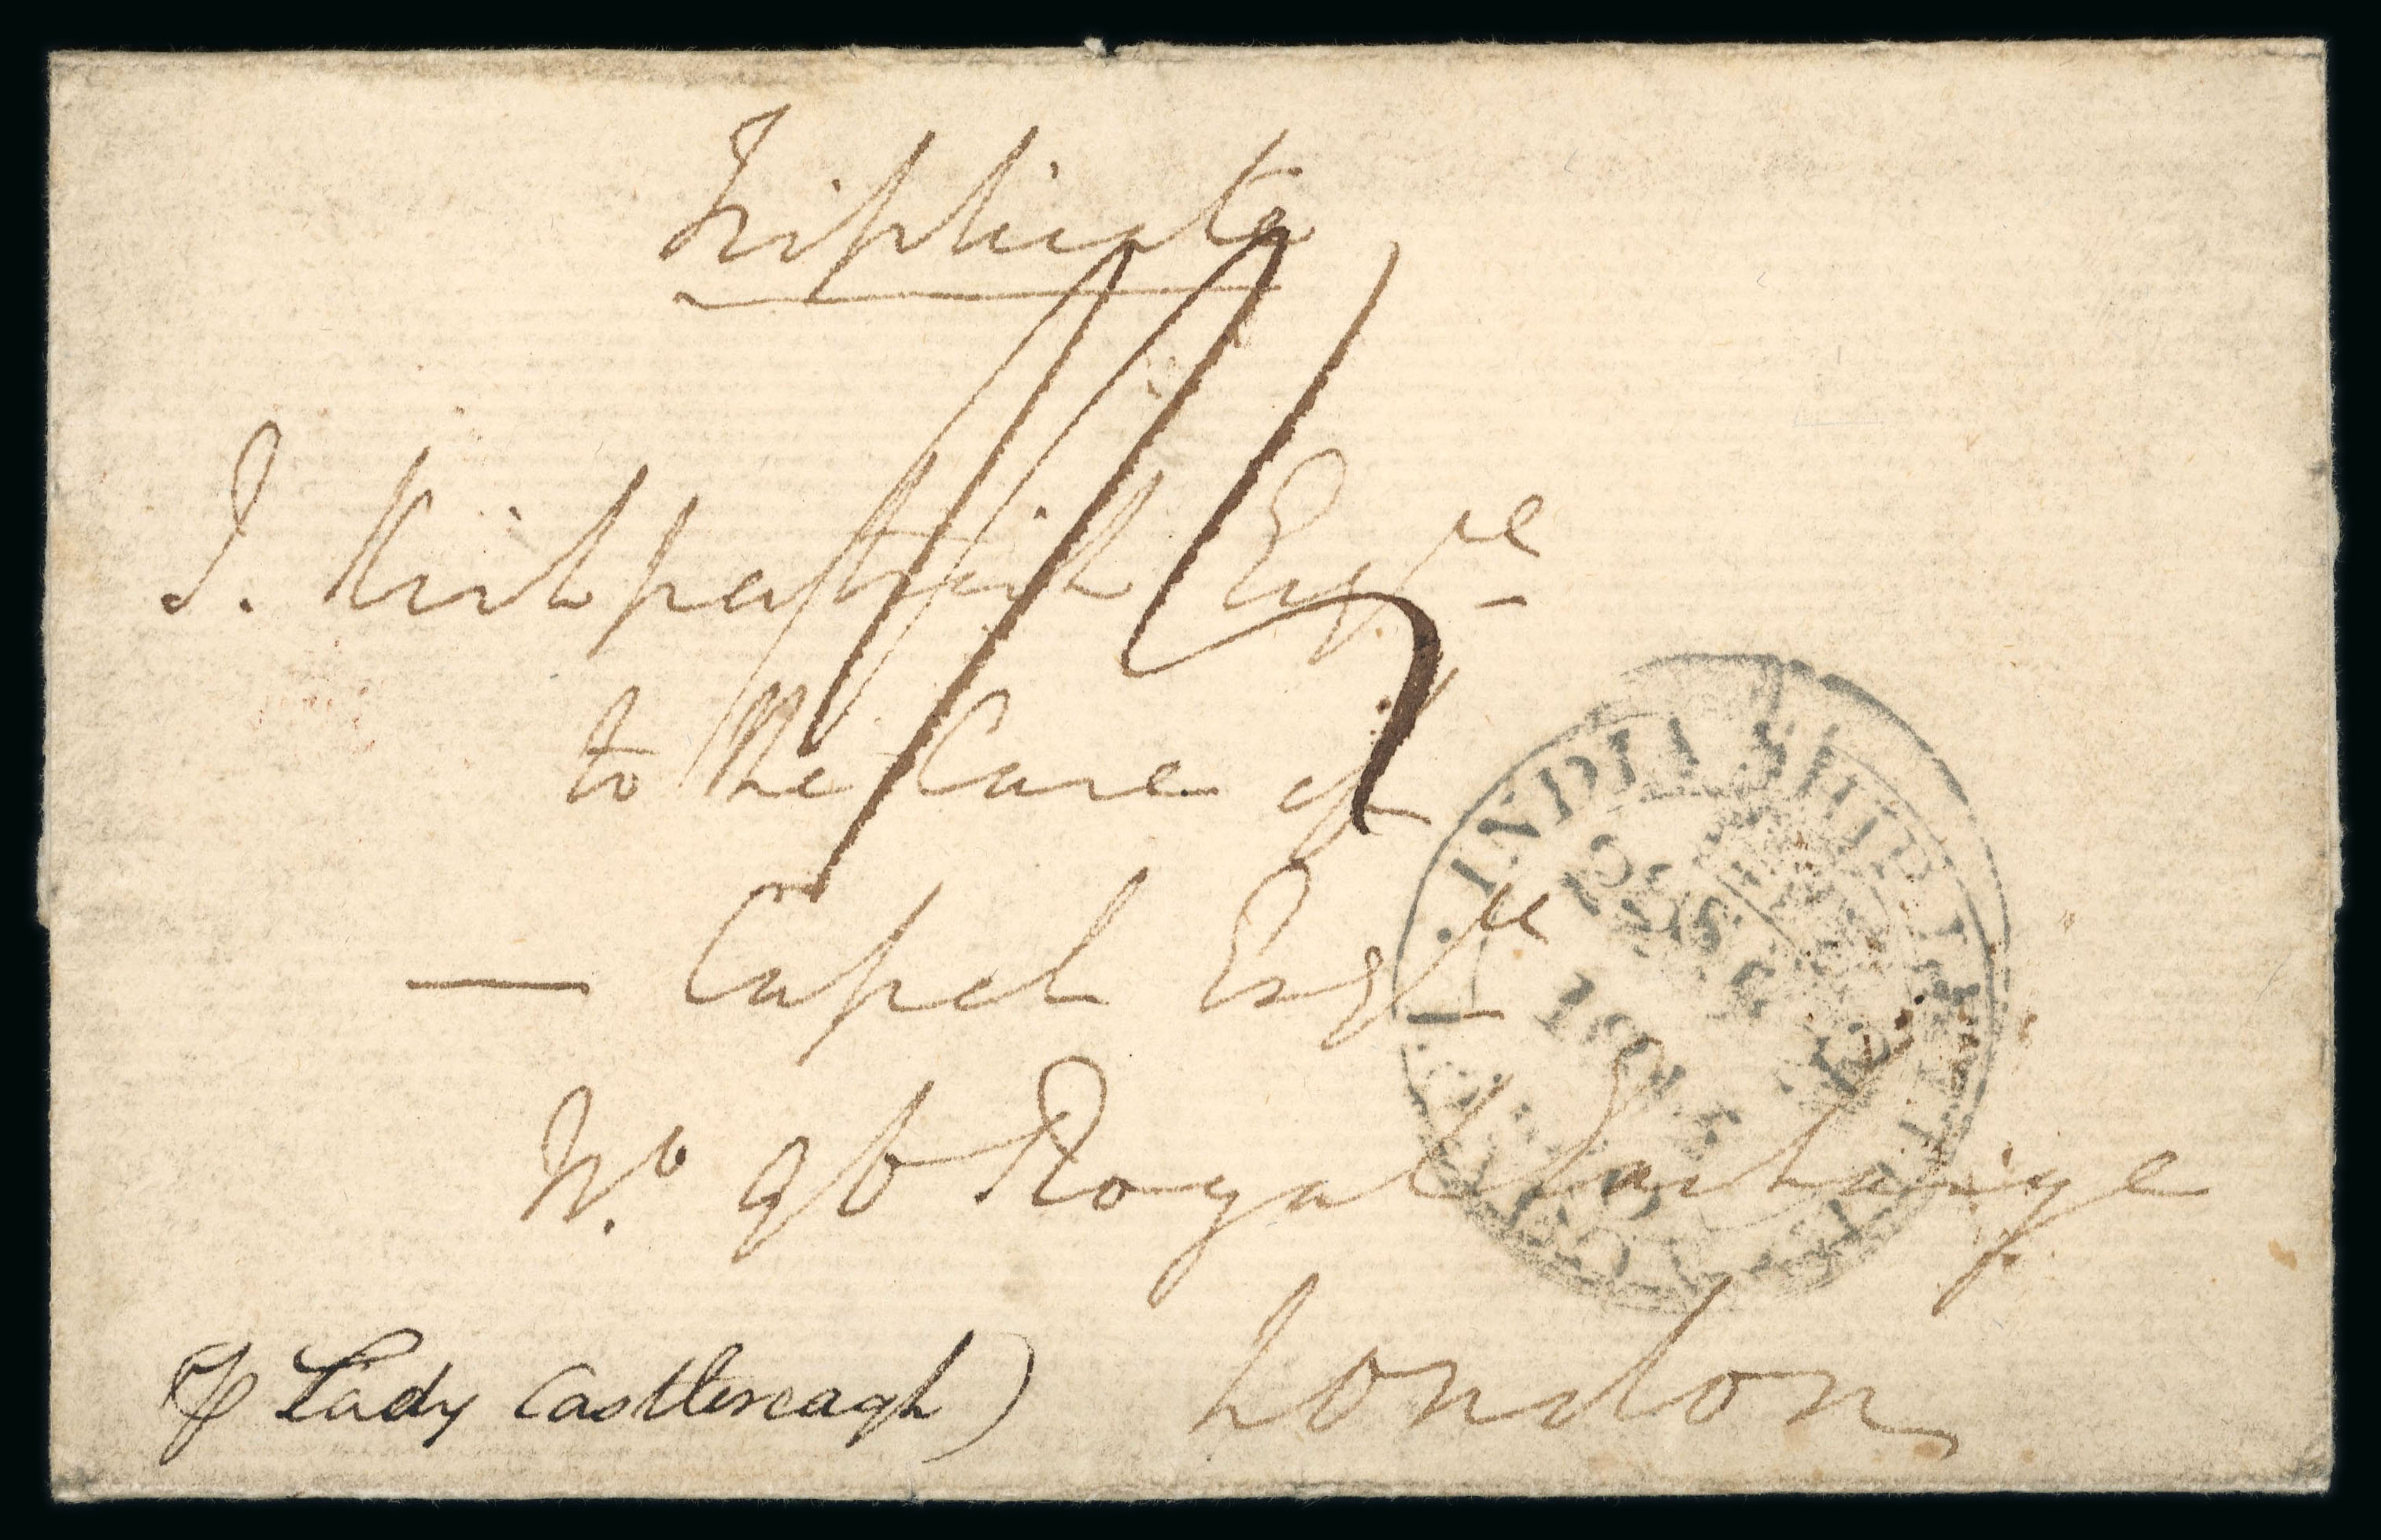 Triplicate
J. Kirkpatrick Esqre
to the Care of
— Capel Esqre
No. 96 Royal Exchange
London
(P Lady Castlereagh)
INDIA SHIP LETTER